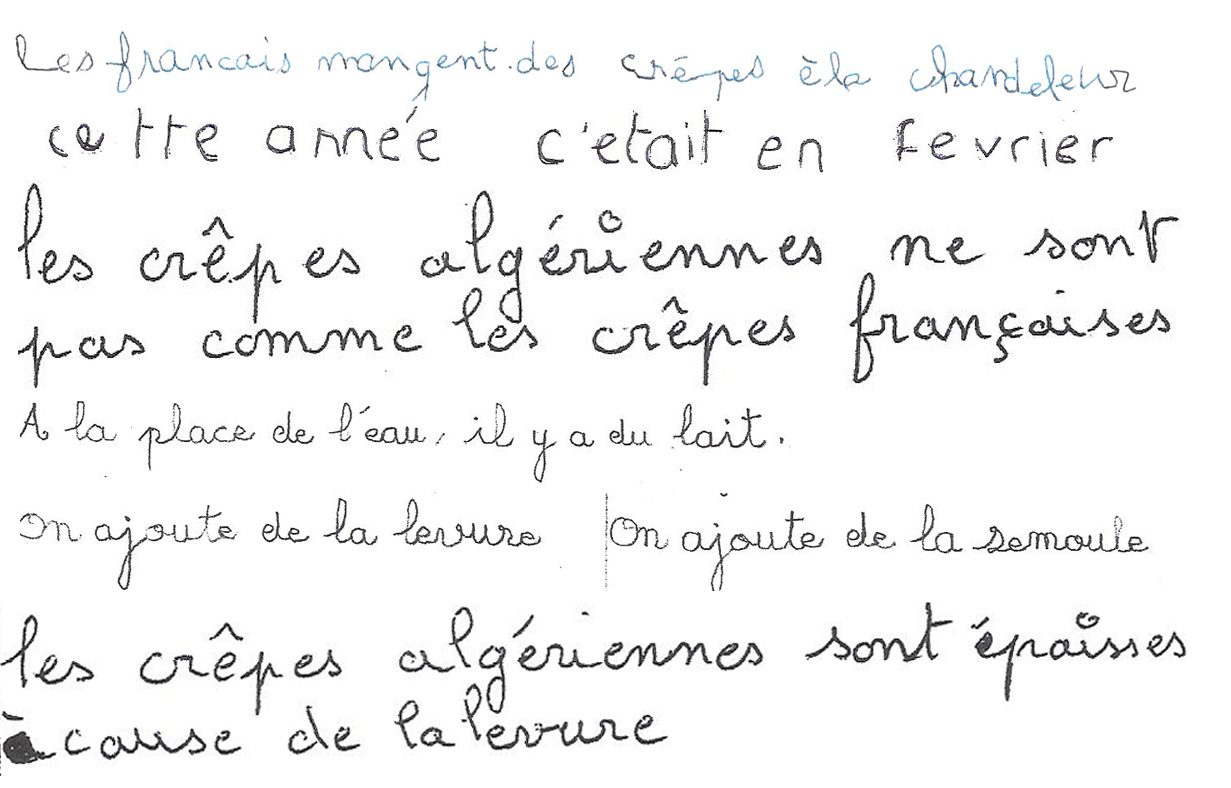 Les francais mangent des crêpes à la chandeleur
cette année c'etait en Fevrier
les crêpes algériennes ne sont
pas comme les crêpes françaises
A la place de l'éau, il y a du lait.
On ajoute de la levure On ajoute de la semoule
les crêpes algériennes sont épaisses
à cause de la levure